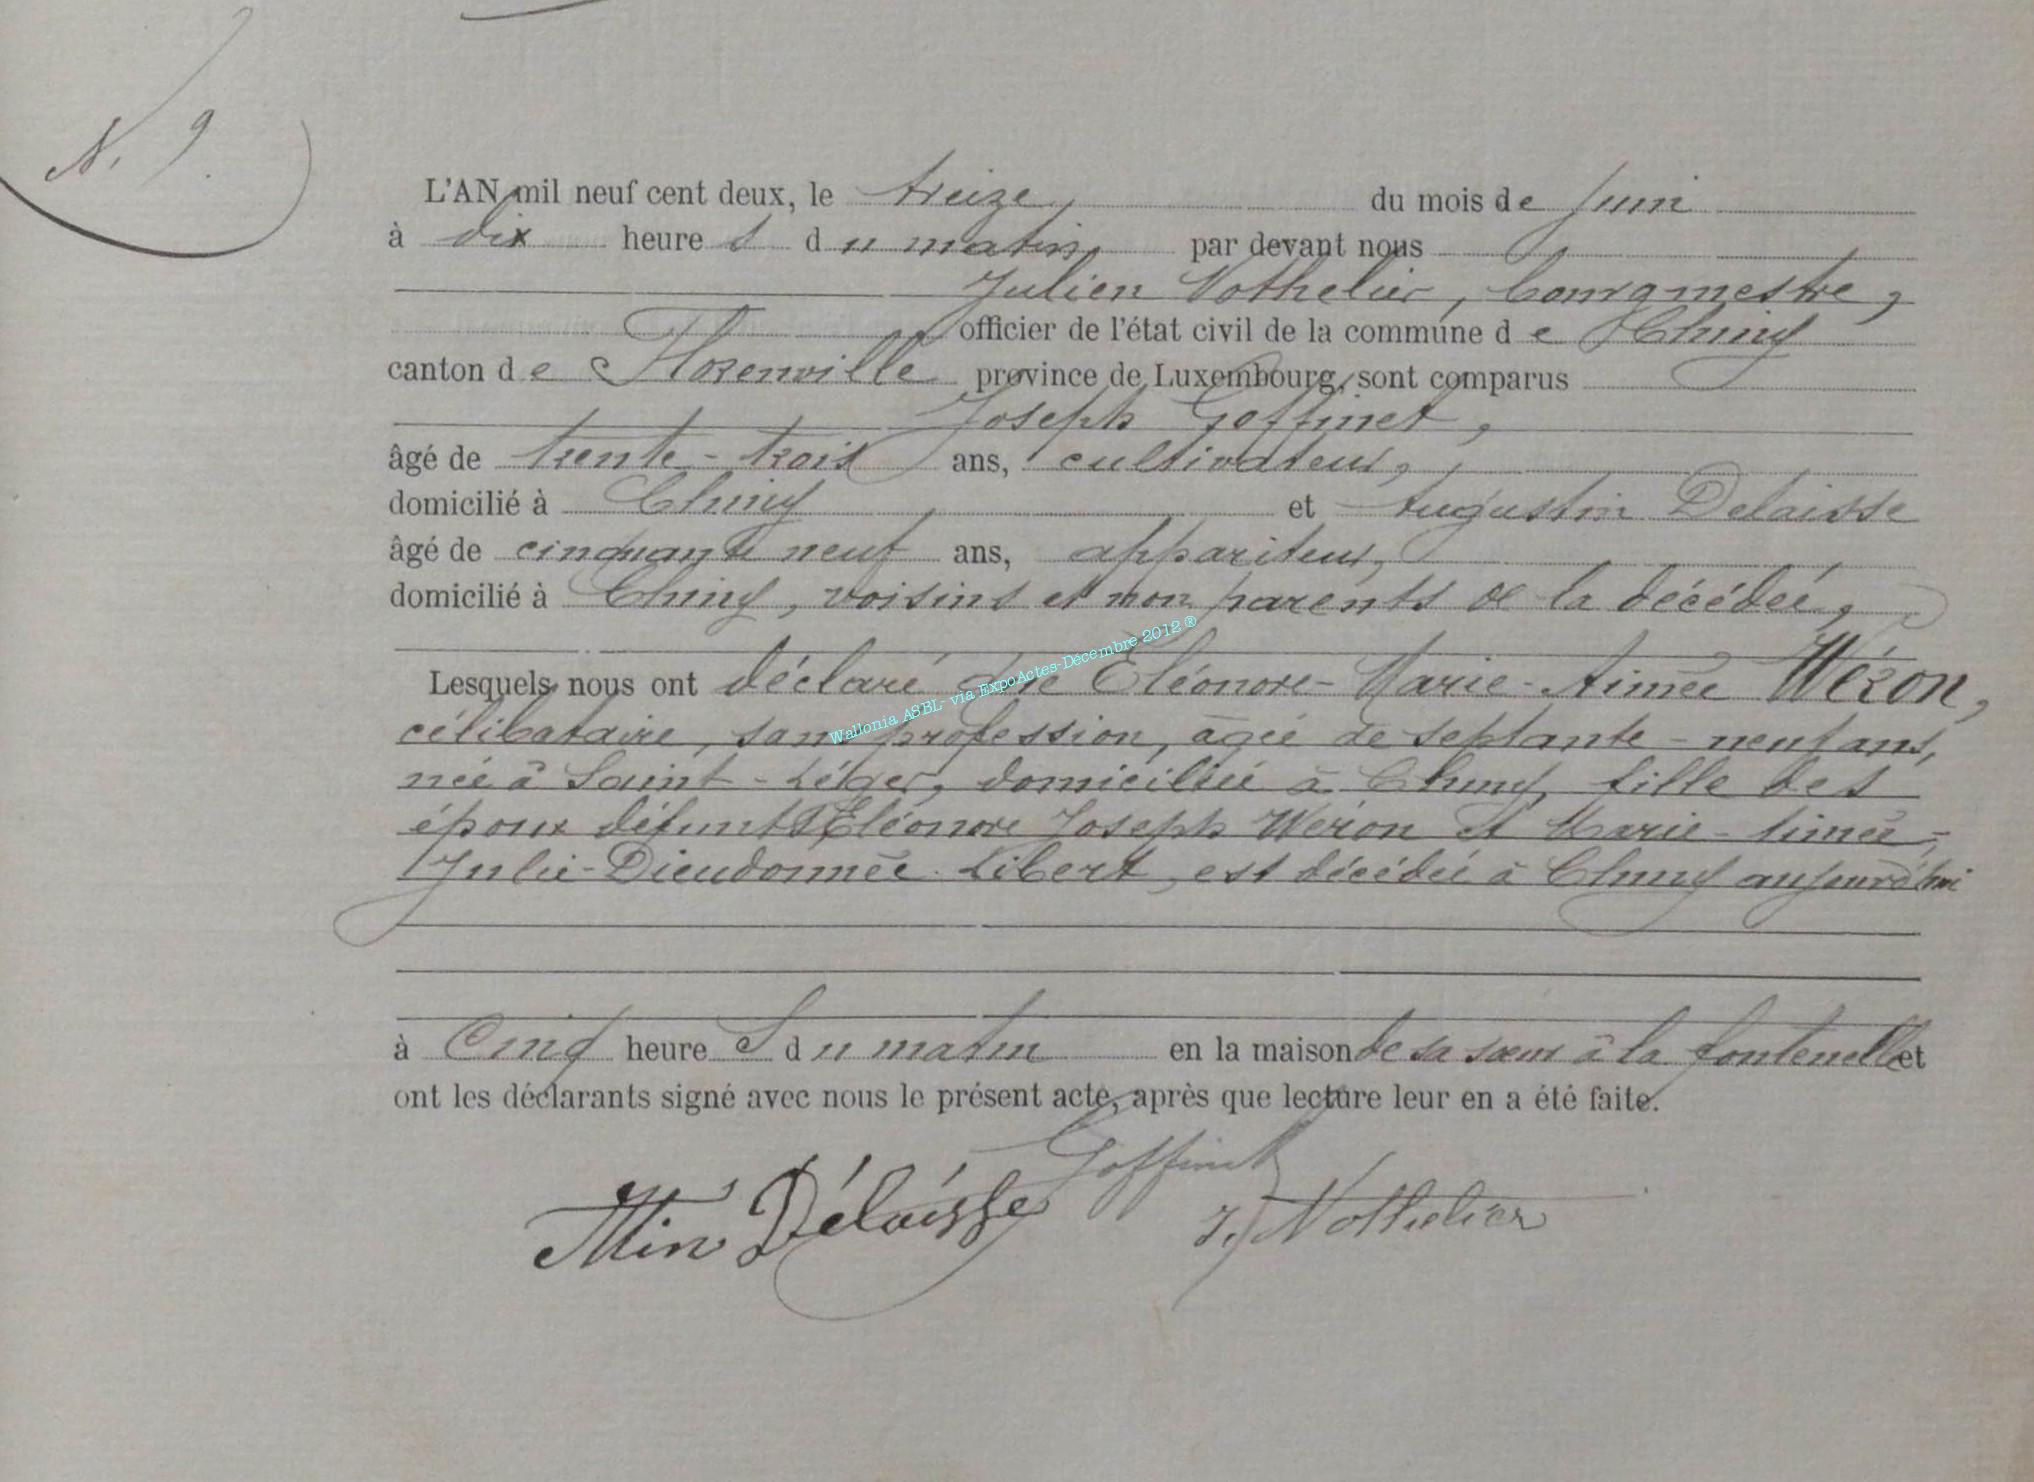 N. 9.
L'AN mil neuf cent deux, le treize, du mois de Juin
à dix heures du matin, par devant nous
Julien Nothelier, bourgmestre,
officier de l'état civil de la commune de Chiny
canton de Florenville province de Luxembourg, sont comparus
Joseph Goffinet,
âgé de trente-trois ans, cultivateur,
domicilié à Chiny, et Augustin Delaisse
âgé de cinquante neuf ans, appariteur,
domicilié à Chiny, voisins et non parents de la décédée,
Lesquels nous ont déclaré que Eléonore-Marie-Aimée Wéron,
célibataire, sans profession, âgée de septante-neuf ans,
née à Saint-Léger, domiciliée à Chiny, fille des
époux défunts Eléonore Joseph Wéron et Marie-Aimée-
Julie-Dieudonnée Libert, est décédée à Chiny aujourd'hui
à Cinq heures du matin en la maison de sa sœur à la fontenelle et
ont les déclarants signé avec nous le présent acte, après que lecture leur en a été faite.
Goffinet
Min Délaisse J. Nothelier
Wallonia ASBL- via ExpoActes-Décembre 2012 ®